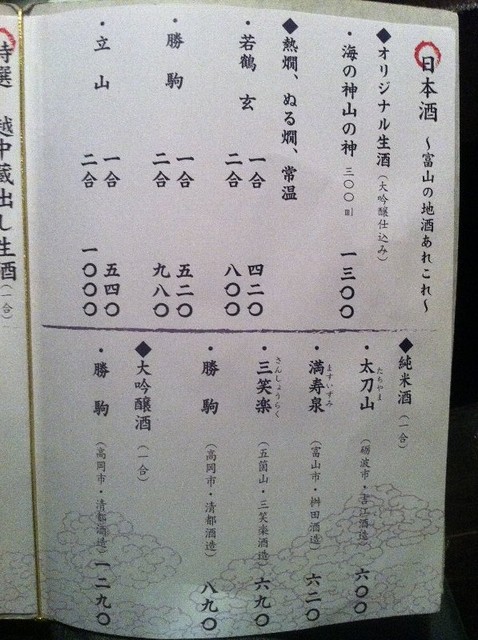 日本酒 ～富山の地酒あれこれ～
◆オリジナル生酒（大吟醸仕込み）
・海の神山の神 三〇〇ml 一三〇〇
◆熱燗、ぬる燗、常温
・若鶴 玄 一合 四二〇
二合 八〇〇
・勝駒 一合 五二〇
二合 九八〇
・立山 一合 五四〇
二合 一〇〇〇
◆純米酒（一合）
たちやま
・太刀山（砺波市・吉江酒造） 六〇〇
ますいずみ
・満寿泉（富山市・桝田酒造） 六二〇
さんしょうらく
・三笑楽（五箇山・三笑楽酒造） 六九〇
・勝駒（高岡市・清都酒造） 八九〇
◆大吟醸酒（一合）
・勝駒（高岡市・清都酒造） 一二九〇
特選 越中蔵出し生酒（一合）